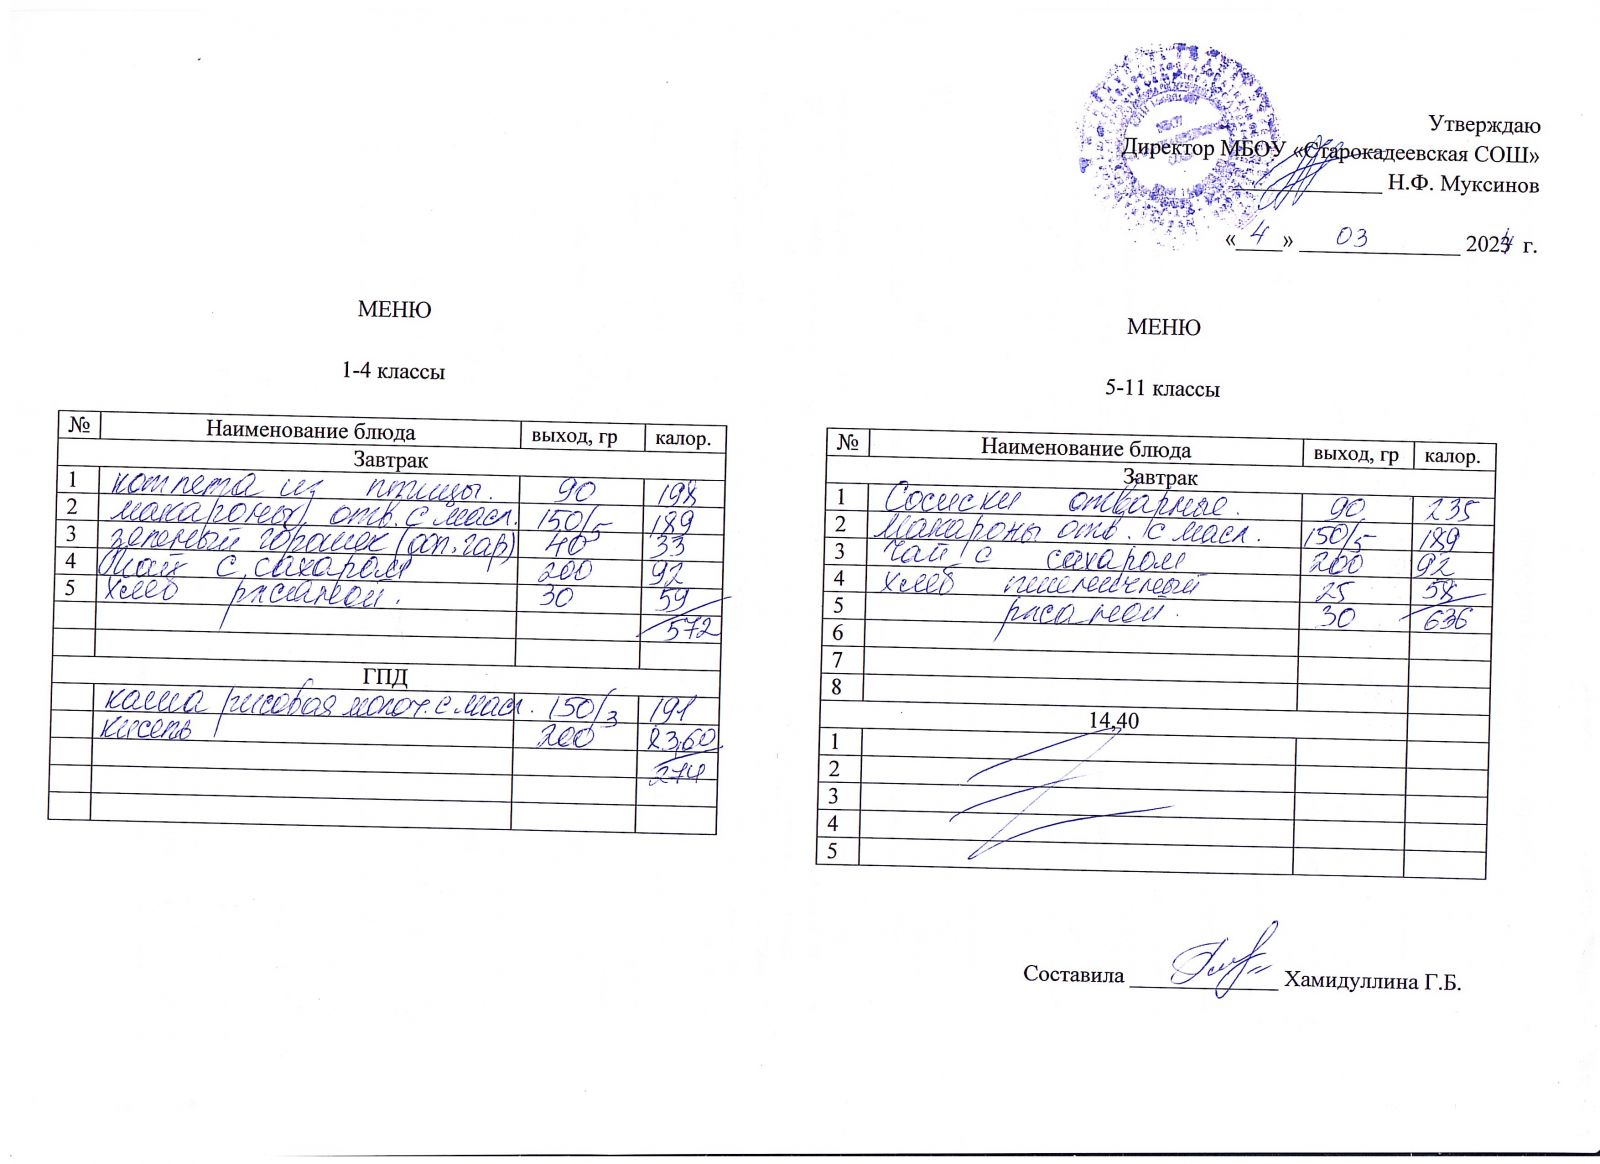 Утверждаю
Директор МБОУ «Старокадеевская СОШ»
Н.Ф. Муксинов
« 4 » 03 2024 г.
МЕНЮ
1-4 классы
№ Наименование блюда выход, гр калор.
Завтрак
1 котлета из птицы. 90 198
2 макароны отв. с масл. 150/5 189
3 зеленый горошек (доп. гар) 40 33
4 Чай с сахаром 200 92
5 хлеб ржаной. 30 59
572
ГПД
каша рисовая молоч. с масл. 150/3 191
кисель 200 83,60
274
МЕНЮ
5-11 классы
№ Наименование блюда выход, гр калор.
Завтрак
1 Сосиски отварные. 90 235
2 Макароны отв. с масл. 150/5 189
3 Чай с сахаром 200 92
4 хлеб пшеничный 25 58
5 ржаной. 30 636
6
7
8
14,40
1
2
3
4
5
Составила Хамидуллина Г.Б.